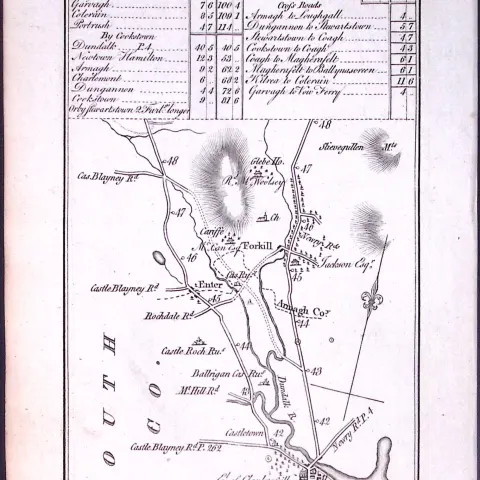 Garvagh 7 6 100 4
Colerain 8 5 109 1
Portrush 4 7 114
By Cookstown
Dundalk P.4 40 5 40 5
Newtown Hamilton 12 3 53
Armagh 9 2 62 2
Charlemont 6 68 2
Dungannon 4 4 72 6
Cookstown 9 81 6
Or by Stewartstown 2 Furl. longer
Cross Roads
Armagh to Loughgall 4
Dungannon to Stewartstown 5.7
Stewartstown to Coagh 4.7
Cookstown to Coagh 4.3
Coagh to Magherafelt 6.1
Magherafelt to Ballynascreen 6.1
Kilrea to Colerain 11 6
Garvagh to New Ferry 4
48
48
Slievegullen Mts
Glebe Ho.
47
Cas. Blayney Rd
Rd. McWoolsey
47
Ch
36
Cariffe
Newry Rd
McCan Esqr
Forkill
46
Jackson Esqr
Cas. Ru.
45
Castle Blayney Rd
Enter
45
A
Armagh Coy.
Rochdale Rd
44
44
Castle Roch Ru.s
43
Ballrigan Cas. Ru.s
Dundalk R.
Mc. Hill Rd
43
42
Castletown
42
Newry Rd P.4
Castle Blayney Rd P. 262
OUTH
CO.